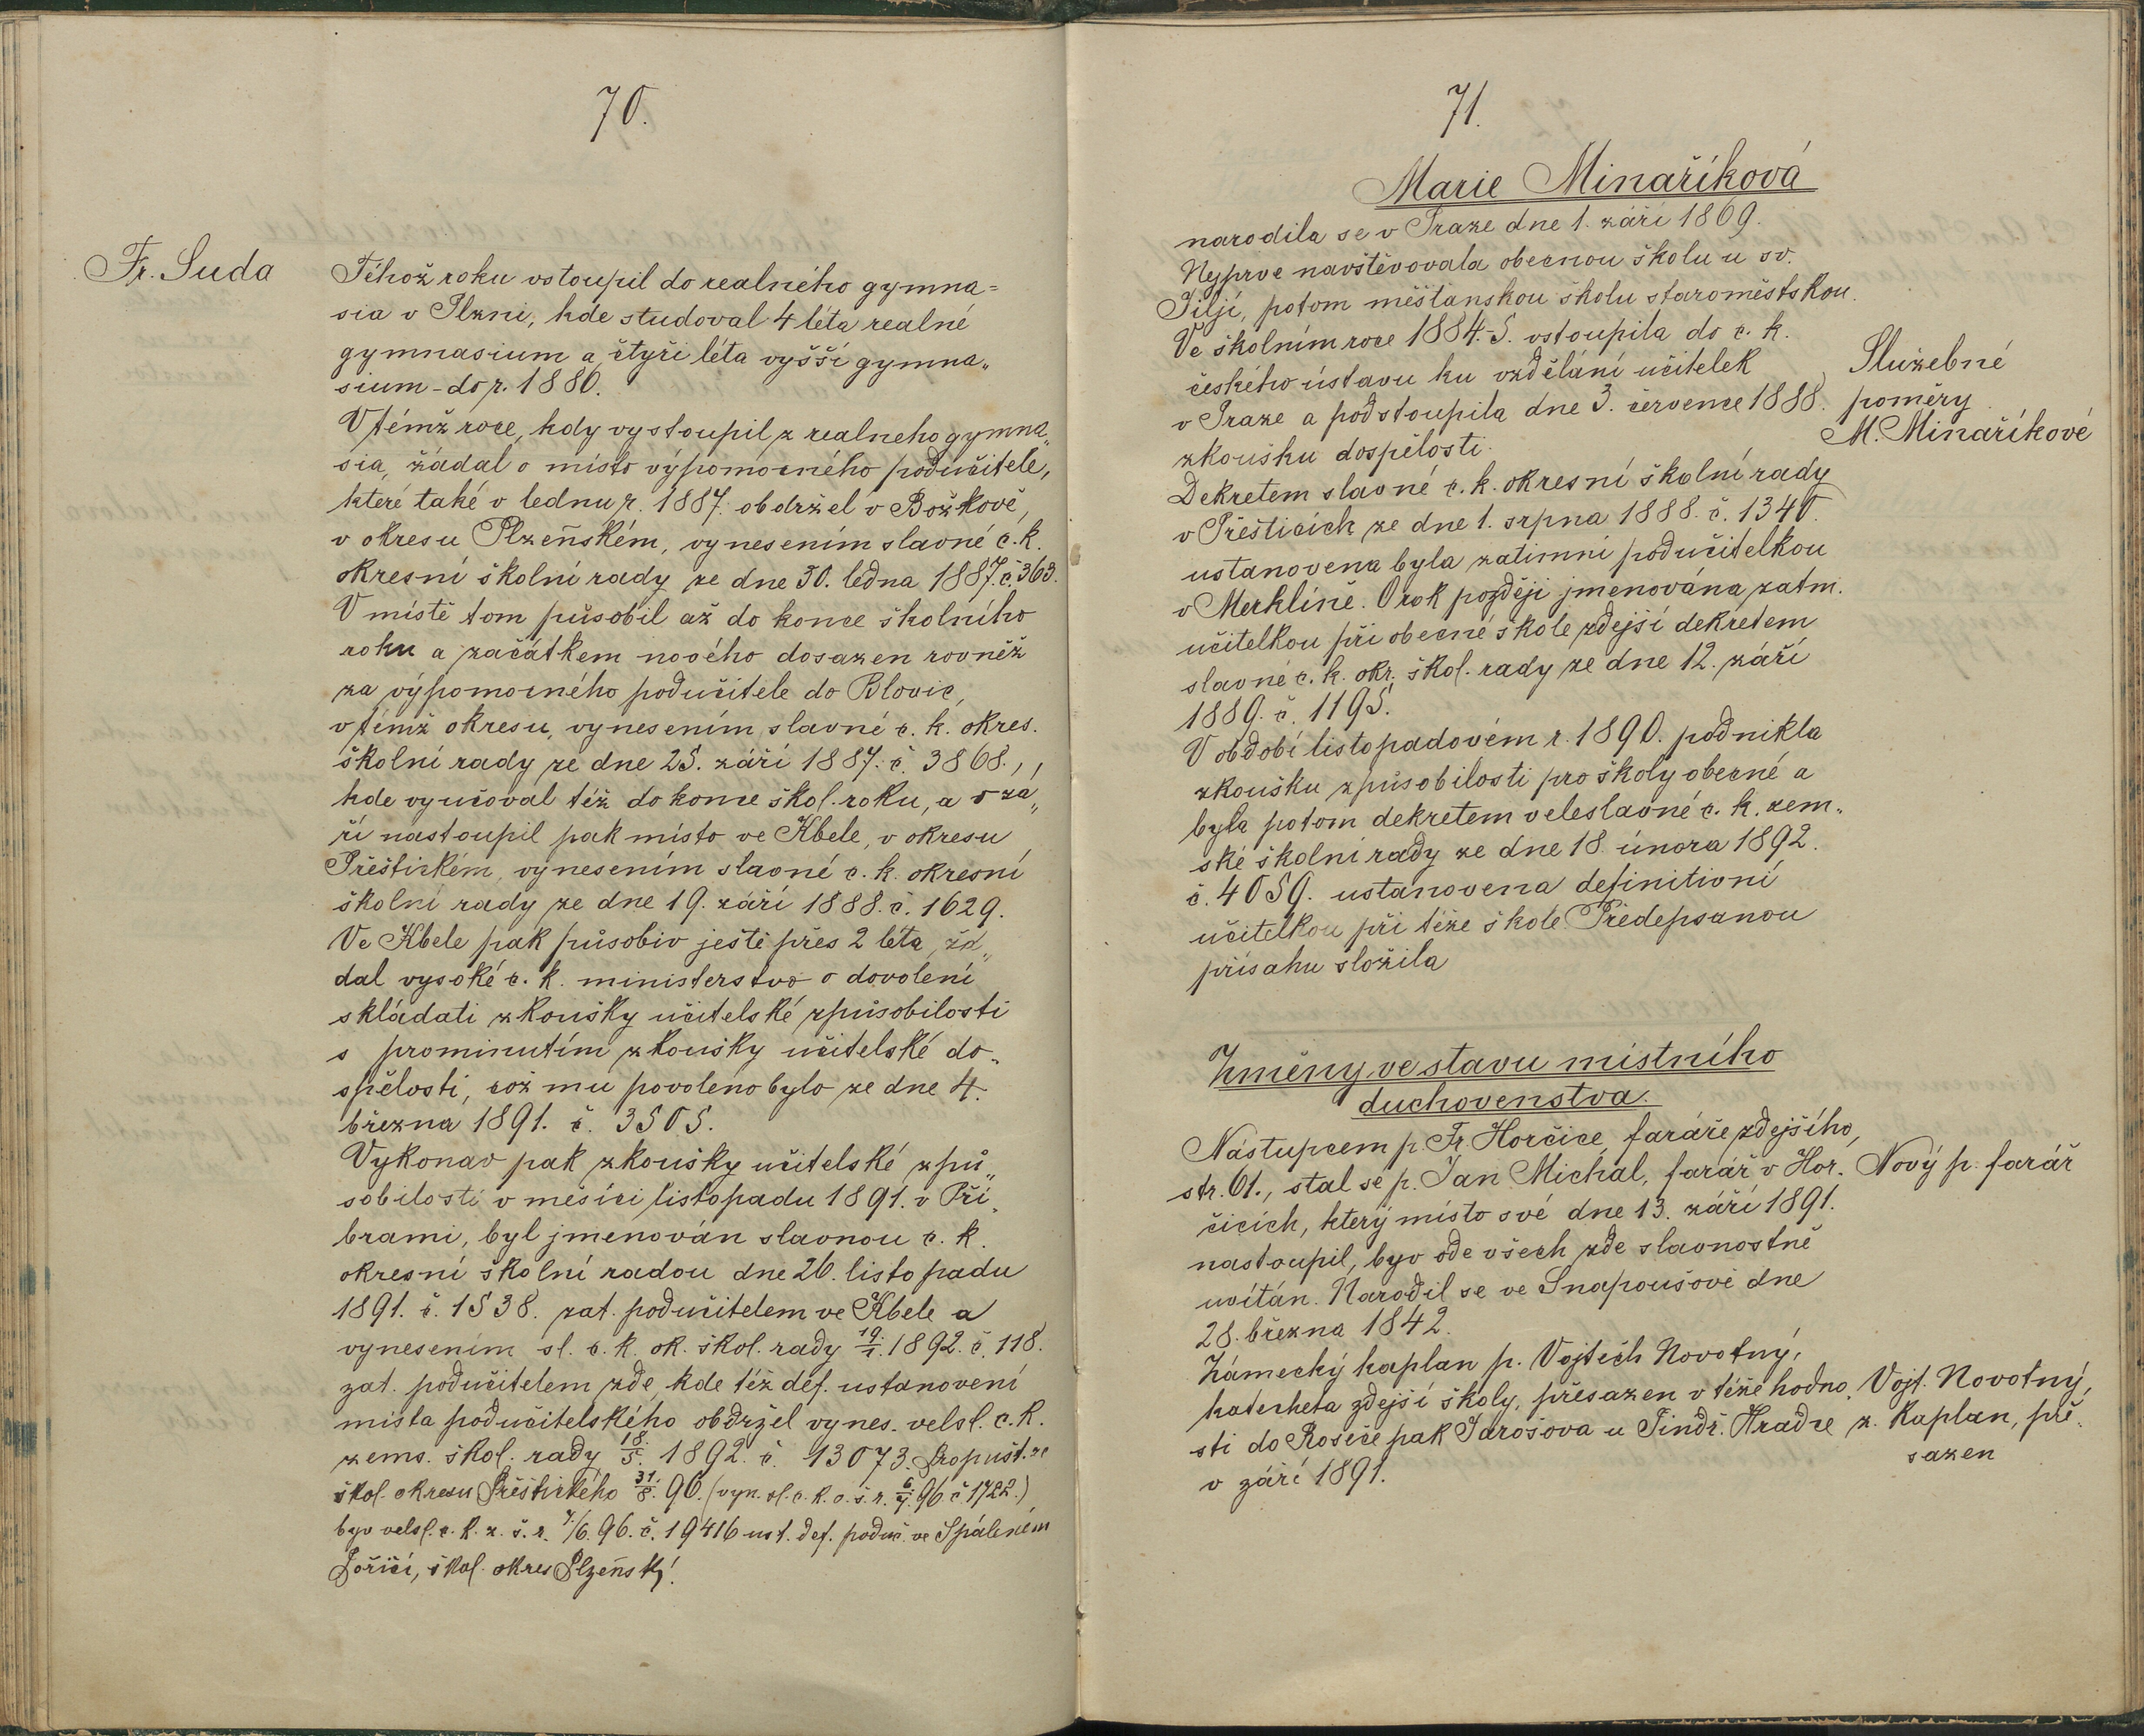 70.
Fr. Suda
Téhož roku vstoupil do realného gymna=
sia v Plzni, kde studoval 4 léta realné
gymnasium a čtyři léta vyšší gymna„
sium - do r. 1886.
V témž roce, kdy vystoupil z realneho gymna„
sia, žádal o místo výpomocného podučitele,
které také v lednu r. 1887. obdržel v Božkově,
v okresu Plzeňském, vynesením slavné c. k.
okresní školní rady ze dne 30. ledna 1887. č. 363.
V místě tom působil až do konce školního
roku a začátkem nového dosazen rovněž
za výpomocného podučitele do Blovic,
v témž okresu, vynesením slavné c. k. okres.
školní rady ze dne 25. září 1887. č. 3868.,
kde vyučoval též do konce škol. roku, a v zá„
ří nastoupil pak místo ve Kbele, v okresu
Přeštickém, vynesením slavné c. k. okresní
školní rady ze dne 19. září 1888. č. 1629.
Ve Kbele pak působiv ještě přes 2 léta, žá„
dal vysoké c. k. ministerstvo o dovolení
skládati zkoušky učitelské způsobilosti
s prominutím zkoušky učitelské do„
spělosti, což mu povoleno bylo ze dne 4.
března 1891. č. 3505.
Vykonav pak zkoušky učitelské způ„
sobilosti v měsíci listopadu 1891. v Pří„
brami, byl jmenován slavnou c. k.
okresní školní radou dne 26. listopadu
1891. č. 1538. zat. podučitelem ve Kbele a
vynesením sl. c. k. ok. škol. rady 19./1. 1892. č. 118.
zat. podučitelem zde, kde též def. ustanovení
místa podučitelského obdržel vynes. velsl. c. k.
zems. škol. rady 18./5. 1892. č. 13073. Propušt. ze
škol. okresu Přeštického 31./8. 96. (vyn. sl. c. k. o. š. r. 6./7. 96 č 1722.)
byv velsl. c. k. z. š. r. 7./6. 96. č. 19416 ust. def. poduč. ve Spáleném
Poříčí, škol. okres Plzeňský.
71.
Marie Minaříková
narodila se v Praze dne 1. září 1869.
Nejprve navštěvovala obecnou školu u sv.
Jiljí, potom měšťanskou školu staroměstskou.
Ve školním roce 1884-5. vstoupila do c. k.
českého ústavu ku vzdělání učitelek
v Praze a podstoupila dne 3. července 1888.
zkoušku dospělosti.
Služebné
poměry
M. Minaříkové
Dekretem slavné c. k. okresní školní rady
v Přešticích ze dne 1. srpna 1888. č. 1340.
ustanovena byla zatimní podučitelkou
v Merklíně. O rok později jmenována zatm.
učitelkou při obecné škole zdejší dekretem
slavné c. k. okr. škol. rady ze dne 12. září
1889. č. 1195.
V období listopadovém r. 1890. podnikla
zkoušku způsobilosti pro školy obecné a
byla potom dekretem veleslavné c. k. zem„
ské školní rady ze dne 18. února 1892.
č. 4059. ustanovena definitivní
učitelkou při téže škole. Předepsanou
přísahu složila
Změny ve stavu místního
duchovenstva.
Nástupcem p. Fr. Horčice, faráře zdejšího,
str. 61., stal se p. Jan Michal, farář v Hor.
čicích, který místo své dne 13. září 1891.
nastoupil, byv ode všech zde slavnostně
uvítán. Narodil se ve Snopoušově dne
28. března 1842.
Nový p. farář
Zámecký kaplan p. Vojtěch Novotný,
katecheta zdejší školy, přesazen v téže hodno„
sti do Rosiče pak Jarošova u Jindř. Hradce
v září 1891.
Vojt. Novotný,
z. kaplan, pře„
sazen